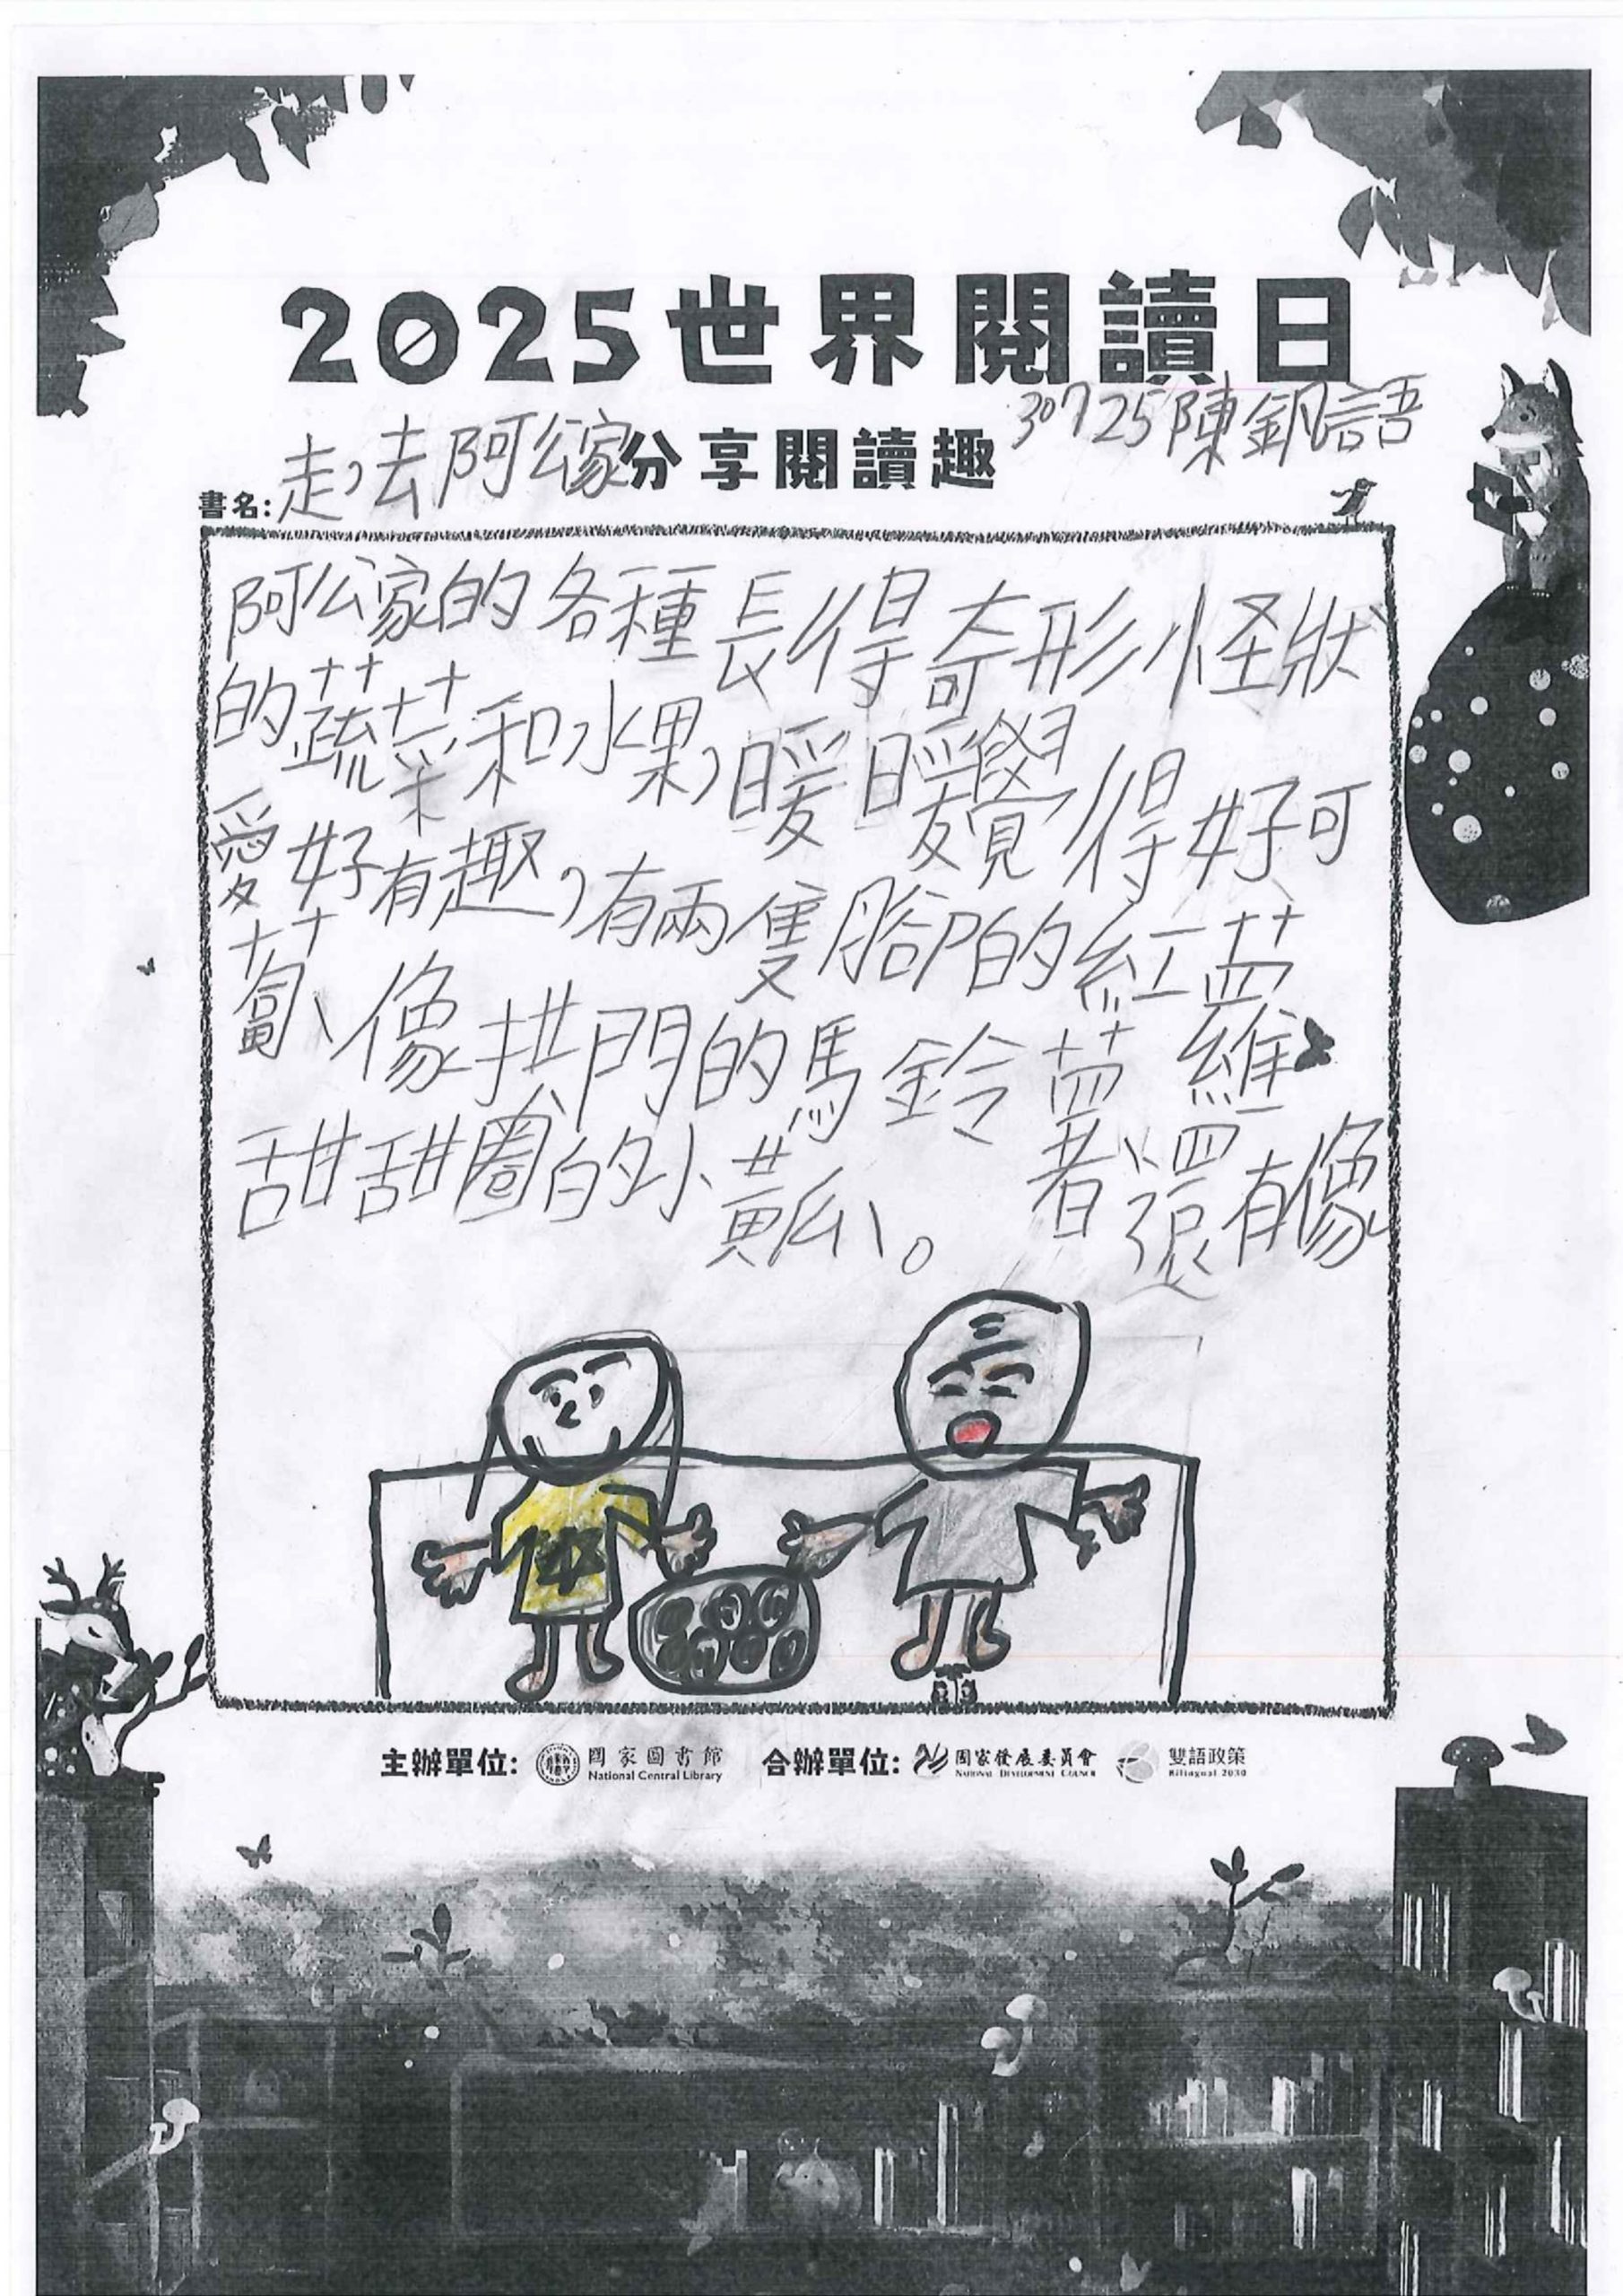 2025世界閱讀日
分享閱讀趣
30725陳釩語
書名:走,去阿公家
阿公家的各種長得奇形怪狀
的蔬菜和水果,暖暖覺得好可
愛好有趣,有兩隻腳的紅蘿
蔔、像拱門的馬鈴薯還有像
甜甜圈的小黃瓜、。
主辦單位: 國家圖書館 National Central Library 合辦單位: 國家發展委員會 National Development Council 雙語政策 Bilingual 2030